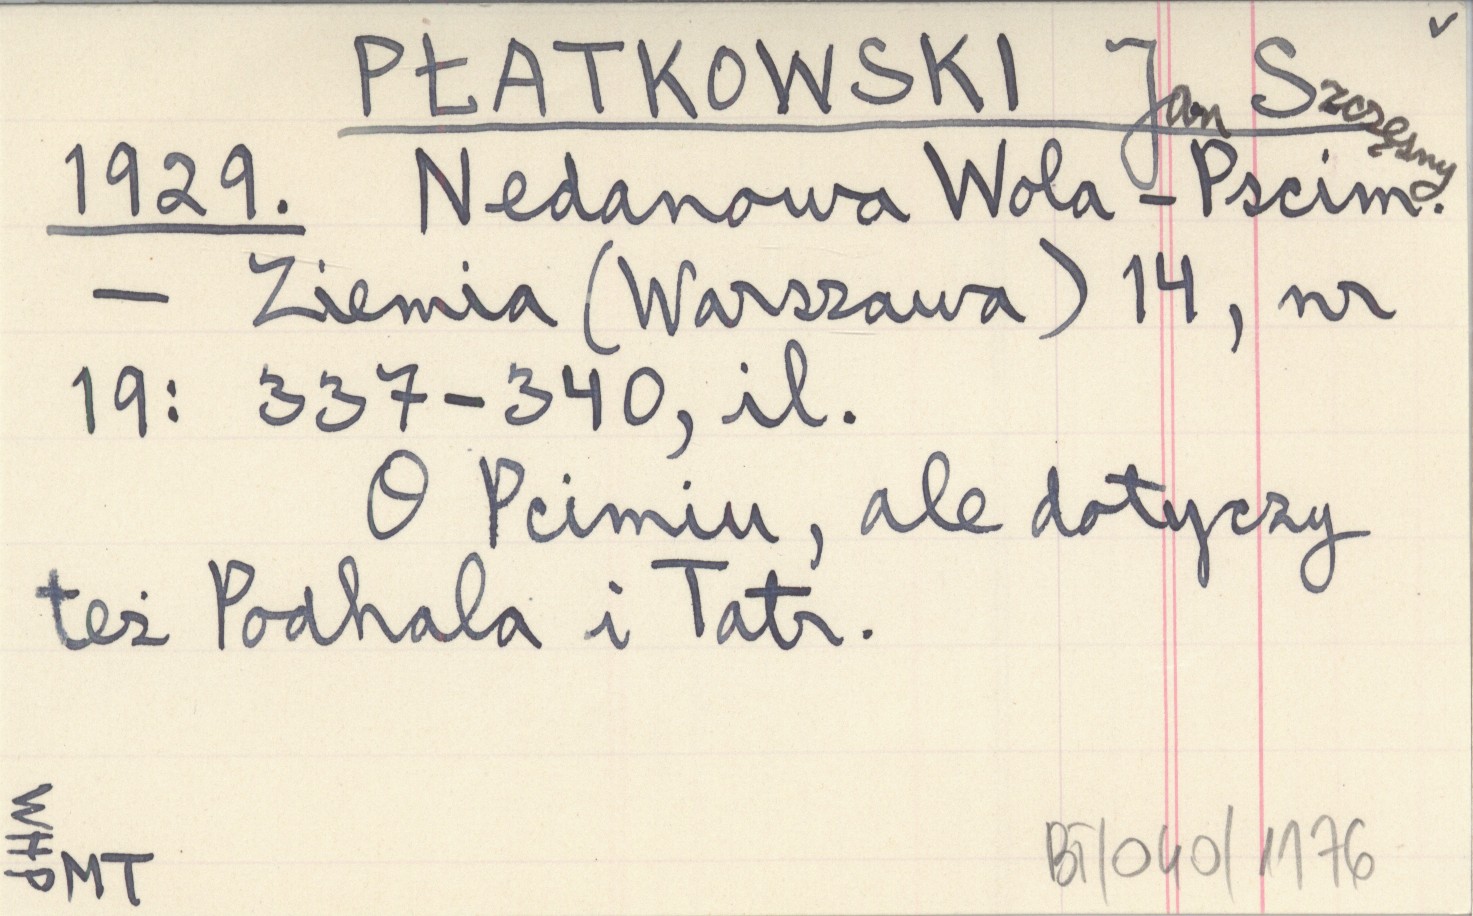 PŁATKOWSKI Jan Szczęsny
1929. Nedanowa Wola - Pscim.
— Ziemia (Warszawa) 14, nr
19: 337-340, il.
O Pcimiu, ale dotyczy
też Podhala i Tatr.
WHP
MT
BT/040/1176